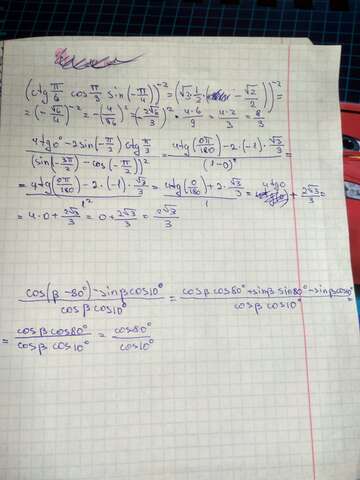 (ctg π/6 cos π/3 sin(-π/4))^-2 = (√3 · 1/2 · (-√2/2))^-2 =
= (-√6/4)^-2 = (-4/√6)^2 = (-2√6/3)^2 = 4·6/9 = 4·2/3 = 8/3
4tg0° - 2sin(-π/2) ctg π/3 / (sin(-3π/2) - cos(-π/2))^2 = 4tg(0π/180) - 2·(-1)·√3/3 / (1-0)^2 =
= 4tg(0π/180) - 2·(-1)·√3/3 / 1^2 = 4tg(0/180) + 2·√3/3 / 1 = 4tg0 + 2√3/3 =
= 4·0 + 2√3/3 = 0 + 2√3/3 = 2√3/3
cos(β-80°) - sinβ cos10° / cosβ cos10° = cosβ cos80° + sinβ sin80° - sinβ cos10° / cosβ cos10° =
= cosβ cos80° / cosβ cos10° = cos80° / cos10°